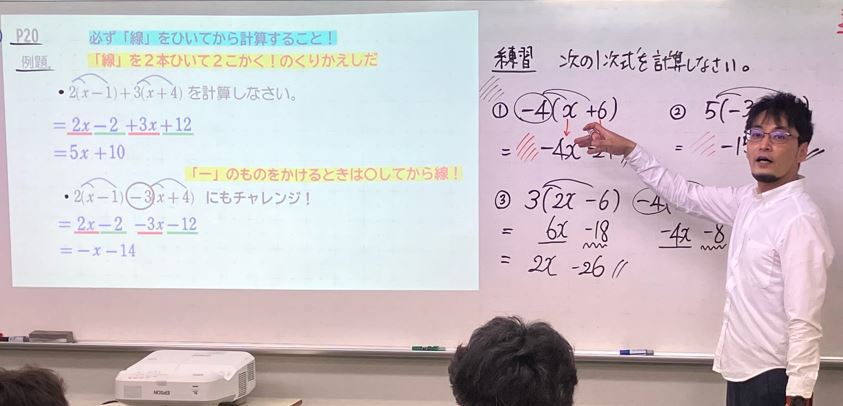 P20
必ず「線」をひいてから計算すること！
例題
「線」を２本ひいて２こかく！のくりかえしだ
・2(x−1)+3(x+4)を計算しなさい。
=2x−2+3x+12
=5x+10
「ー」のものをかけるときは〇してから線！
・2(x−1)−3(x+4) にもチャレンジ！
=2x−2 −3x−12
=−x−14
EPSON
練習 次の1次式を計算しなさい。
① −4(x+6)
= −4x
② 5(−3
=
③ 3(2x−6) −4(
= 6x −18 −4x −8
= 2x −26